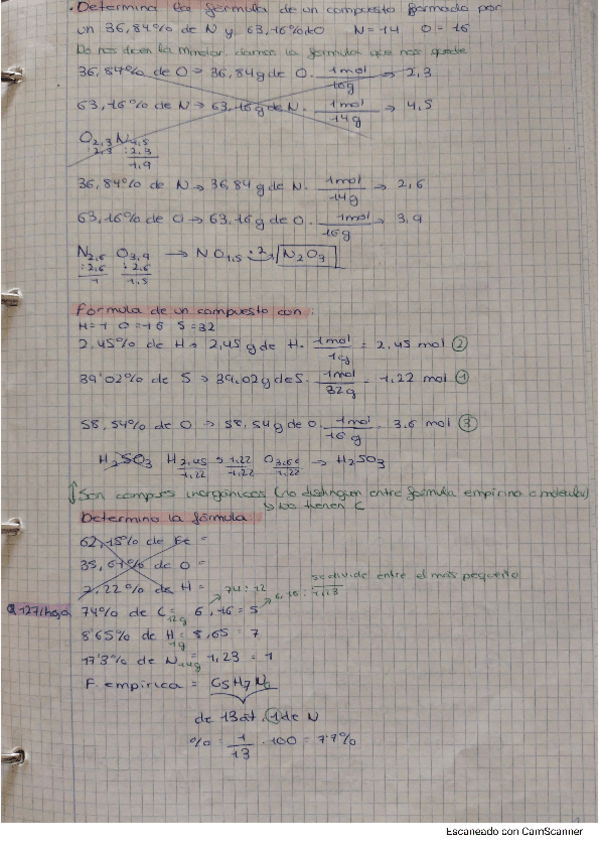 . Determina la fórmula de un compuesto formado por
un 36,84% de N y 63,16% de O N=14 O=16
36,84% de O → 36,84g de O . 1mol/16g → 2,3
63,16% de N → 63,16g de N . 1mol/14g → 4,5
O2,3 N4,5
:2,3 :2,3
1,9
36,84% de N → 36,84 g de N . 1mol/14g → 2,6
63,16% de O → 63,16g de O . 1mol/16g → 3,9
N2,6 O3,9 → NO1,5 ·2 N2O3
:2,6 :2,6
1 1,5
Fórmula de un compuesto con:
H=1 O=16 S=32
2,45% de H → 2,45g de H . 1mol/1g = 2,45 mol 2
39'02% de S → 39,02g de S . 1mol/32g = 1,22 mol 1
58,54% de O → 58,54g de O . 1mol/16g 3,6 mol 3
H2SO3 H2,45/1,22 S1,22/1,22 O3,66/1,22 → H2SO3
Son compues inorgánicos (no distinguen entre fórmula empírica o molecular)
↳ no tienen C
Determina la fórmula
62,15% de =
35,61% de O =
2,22% de H =
se divide entre el más pequeño
74:12 6,16:1,23
127/hoja 74% de C/12g = 6,16 = 5
8'65% de H/1g = 8,65 = 7
17'3% de N/14g = 1,23 = 1
F. empírica = C5H7N1
de 13 át. 1 de N
% = 1/13 . 100 = 7'7%
Escaneado con CamScanner